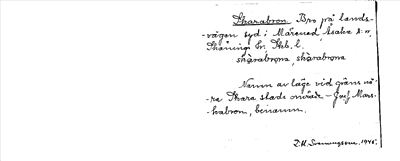 Skarabron. Bro på lands-
vägen syd i Märened, Åsaka sn.
Skånings hd. Skb. l.
skàrabrona, skàrabrona
Namn av läge vid gräns nä-
ra Skara stads område. – Jmf. Mars-
habron, benämn.
D.H. 1948.